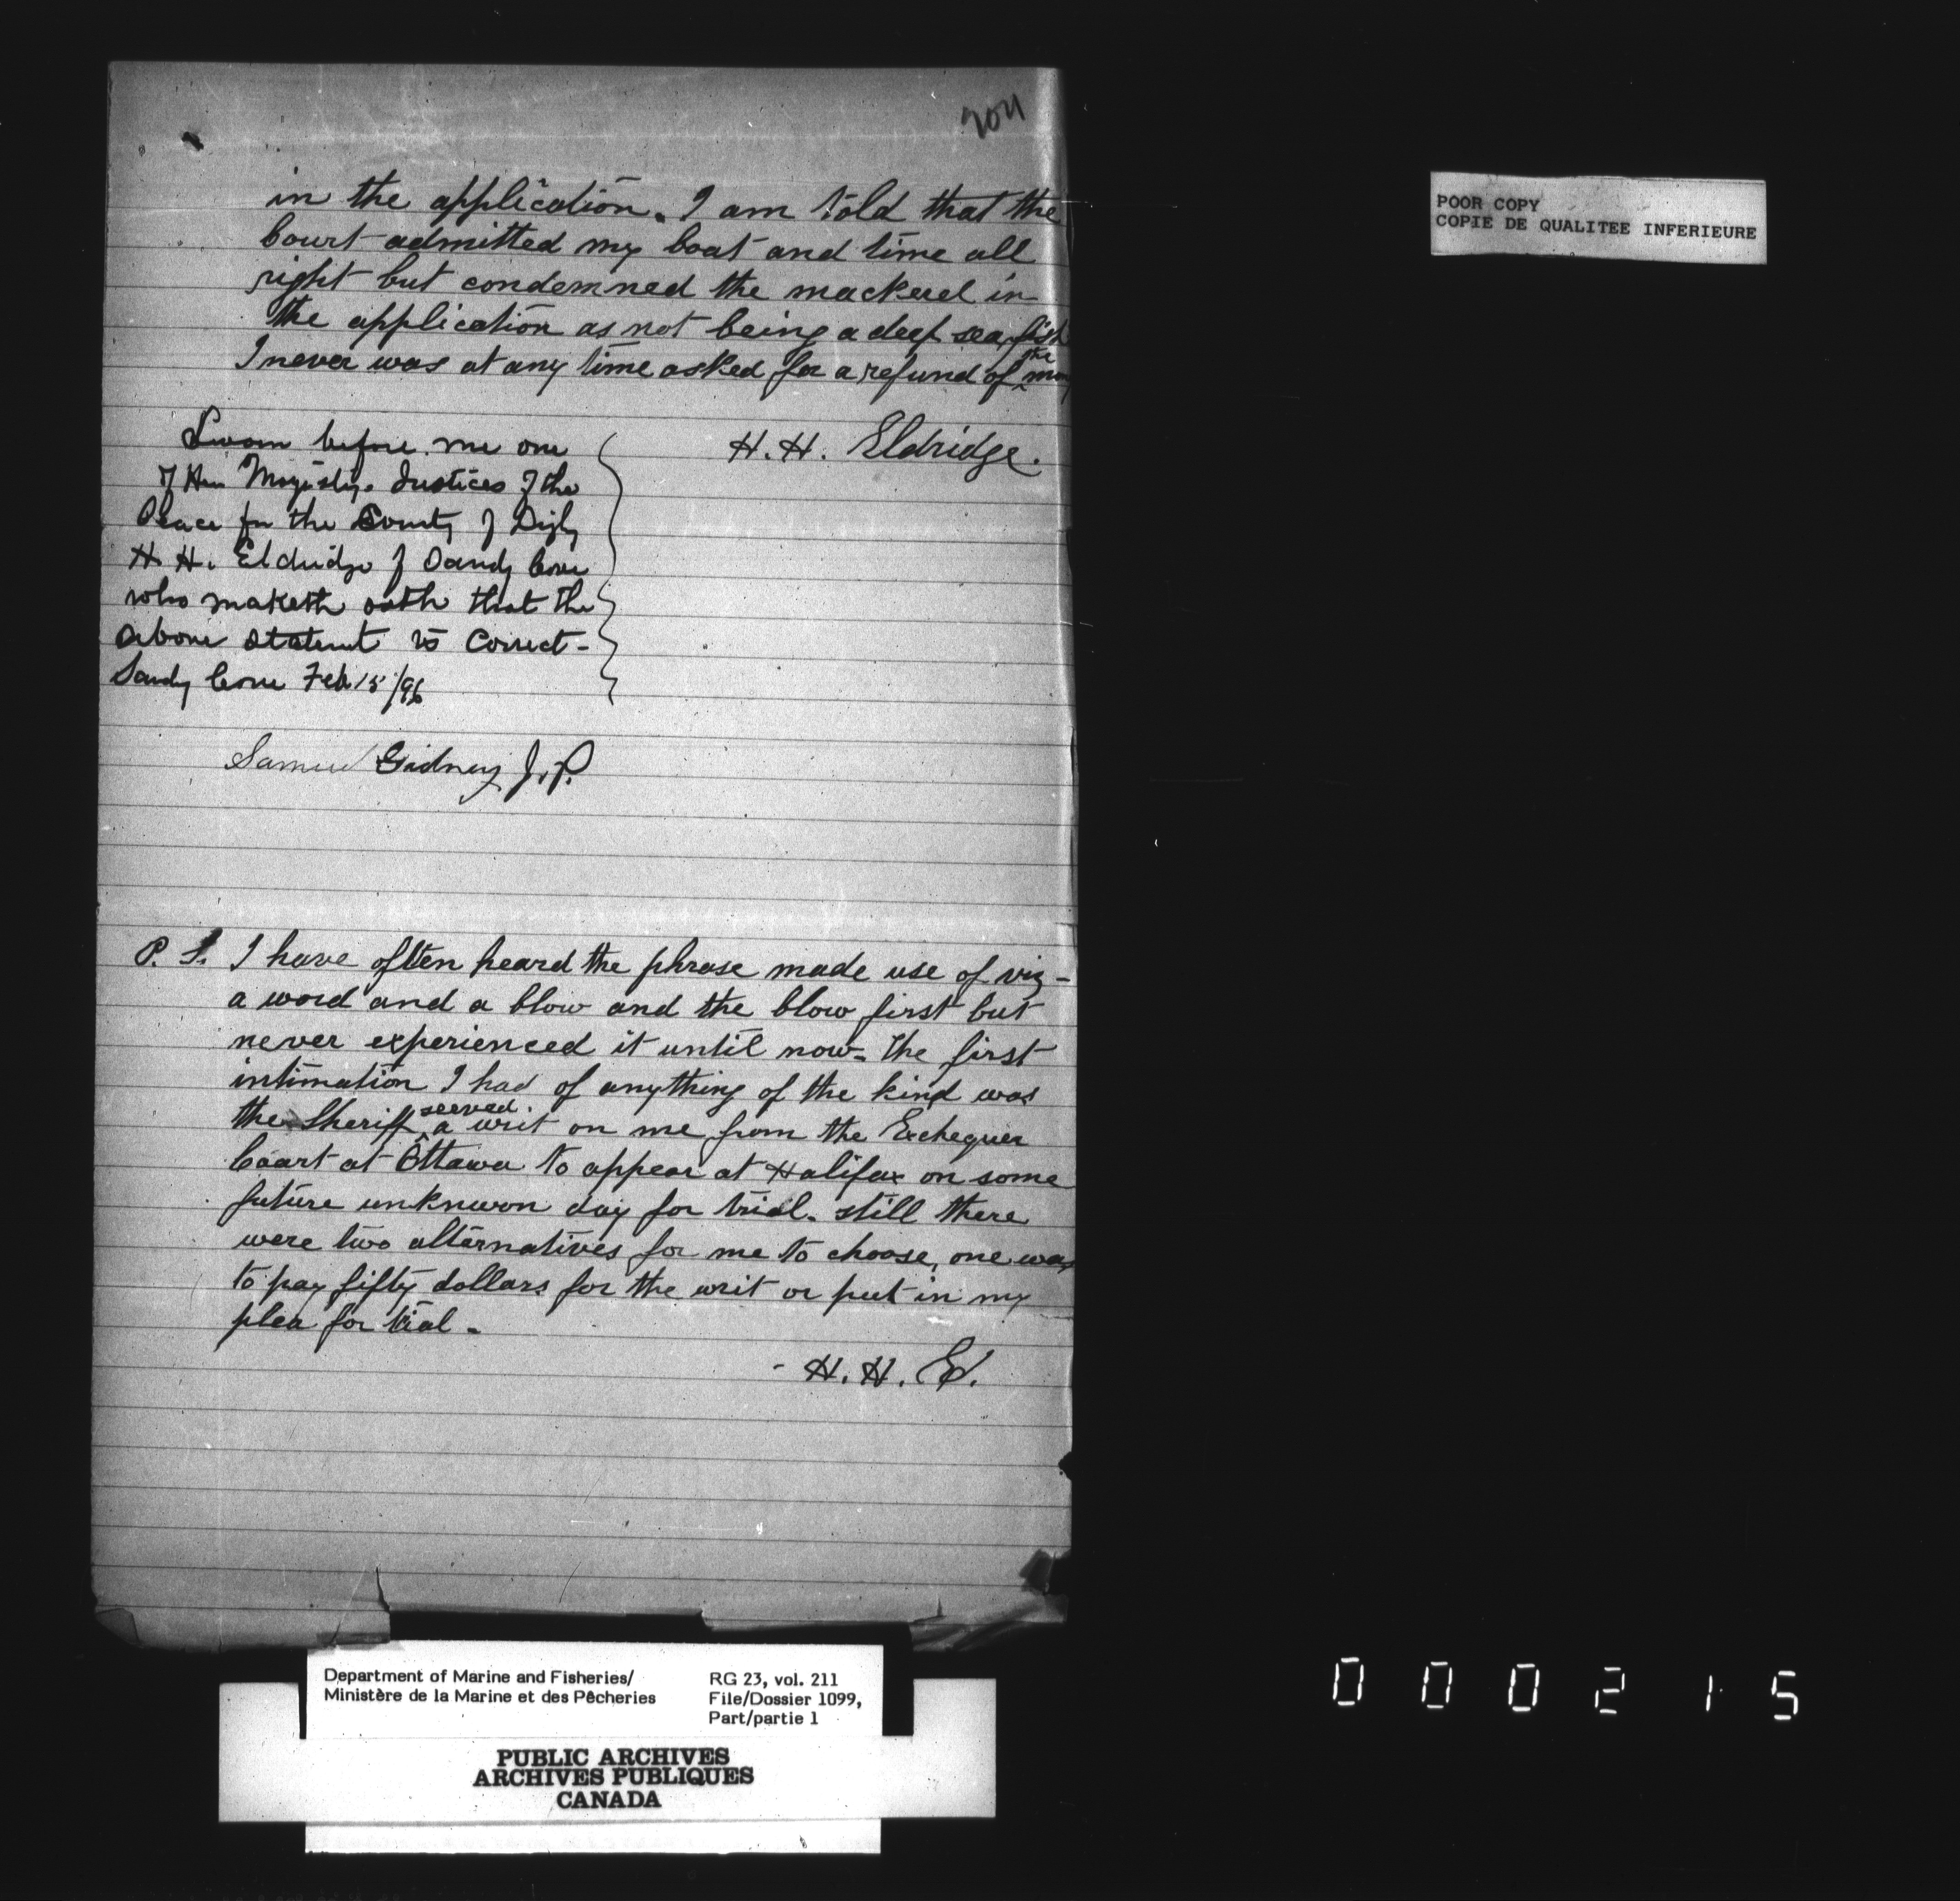 204
in the application. I am told that the
Court admitted my boat and time all
right but condemned the mackerel in
the application as not being a deep sea fish
I never was at any time asked for a refund of the
H. H. Eldridge.
Sworn before me one
of Her Magistys Justices of the
Peace for the County of Digby
H. H. Eldridge of Sandy Cove
who maketh oath that the
above statemt is Correct -
Sandy Cove Feb 15/96
Samuel Gidney J.P.
P. S. I have often heard the phrase made use of viz -
a word and a blow and the blow first but
never experienced it until now. The first
intimation I had of anything of the kind was
the Sheriff served a writ on me from the Exchequer
Coart at Ottawa to appear at Halifax on some
future unknwon day for trial. still there
were two alternatives for me to choose, one was
to pay fifty dollars for the writ or put in my
plea for trial -
- H. H. E.
POOR COPY
COPIE DE QUALITEE INFERIEURE
Department of Marine and Fisheries/
Ministère de la Marine et des Pêcheries
RG 23, vol. 211
File/Dossier 1099,
Part/partie 1
PUBLIC ARCHIVES
ARCHIVES PUBLIQUES
CANADA
000215